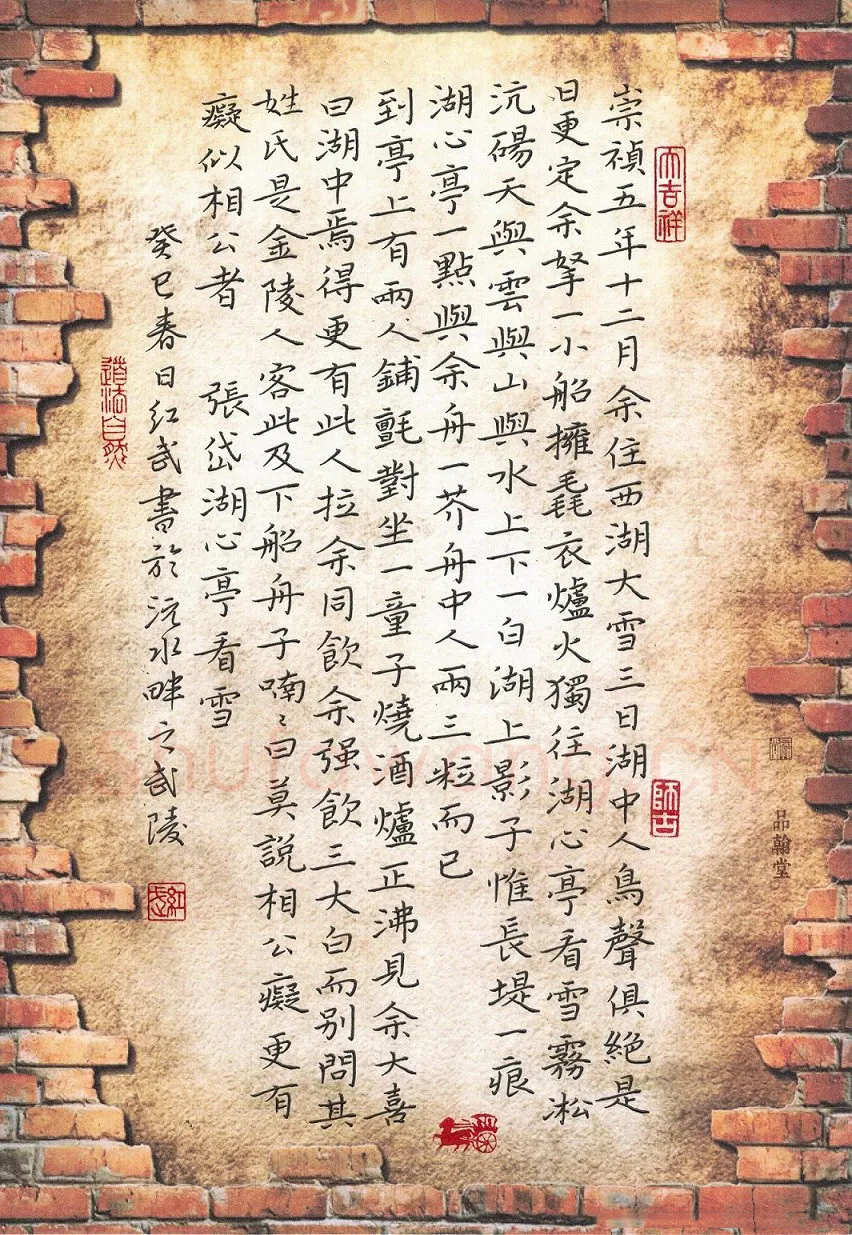 崇禎五年十二月余住西湖大雪三日湖中人鳥聲俱絕是
日更定余拏一小船擁毳衣爐火獨往湖心亭看雪霧凇
沆碭天與雲與山與水上下一白湖上影子惟長堤一痕
湖心亭一點與余舟一芥舟中人兩三粒而已
到亭上有兩人鋪氈對坐一童子燒酒爐正沸見余大喜
曰湖中焉得更有此人拉余同飲余强飲三大白而别問其
姓氏是金陵人客此及下船舟子喃〻曰莫説相公癡更有
癡似相公者 張岱湖心亭看雪
癸巳春日紅武書於沅水畔之武陵
大吉祥
師古
道法自然
紅武
品翰堂